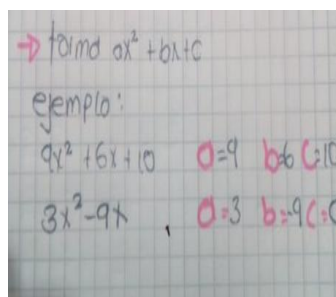 → forma ax² + bx + c
ejemplo:
9x² + 6x + 10 a=9 b=6 c=10
3x² - 9x , a=3 b=-9 c=0